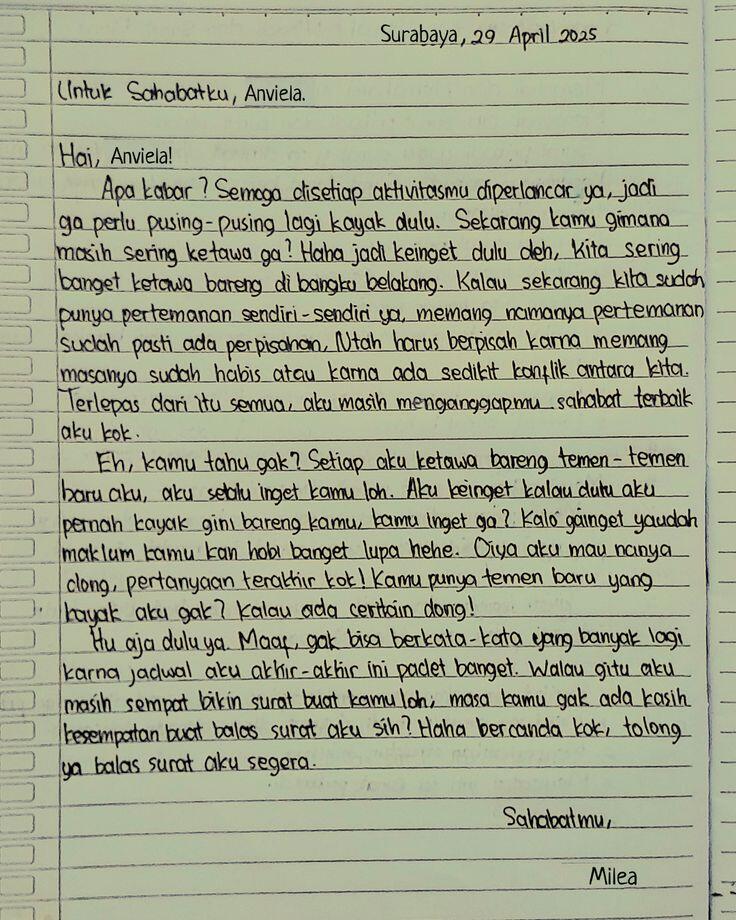 Surabaya, 29 April 2025
Untuk Sahabatku, Anviela.
Hai, Anviela!
Apa kabar? Semoga disetiap aktivitasmu diperlancar ya, jadi
ga perlu pusing-pusing lagi kayak dulu. Sekarang kamu gimana
masih sering ketawa ga? Haha jadi keinget dulu deh, kita sering
banget ketawa bareng di bangku belakang. Kalau sekarang kita sudah
punya pertemanan sendiri-sendiri ya, memang namanya pertemanan
sudah pasti ada perpisahan, Ntah harus berpisah karna memang
masanya sudah habis atau karna ada sedikit konflik antara kita.
Terlepas dari itu semua, aku masih menganggapmu sahabat terbaik
aku kok.
Eh, kamu tahu gak? Setiap aku ketawa bareng temen-temen
baru aku, aku selalu inget kamu loh. Aku keinget kalau dulu aku
pernah kayak gini bareng kamu, kamu inget ga? Kalo gainget yaudah
maklum kamu kan hobi banget lupa hehe. Oiya aku mau nanya
dong, pertanyaan terakhir kok! Kamu punya temen baru yang
kayak aku gak? Kalau ada ceritain dong!
Itu aja dulu ya. Maaf, gak bisa berkata-kata yang banyak lagi
karna jadwal aku akhir-akhir ini padet banget. Walau gitu aku
masih sempat bikin surat buat kamu loh, masa kamu gak ada kasih
kesempatan buat balas surat aku sih? Haha bercanda kok, tolong
ya balas surat aku segera.
Sahabatmu,
Milea